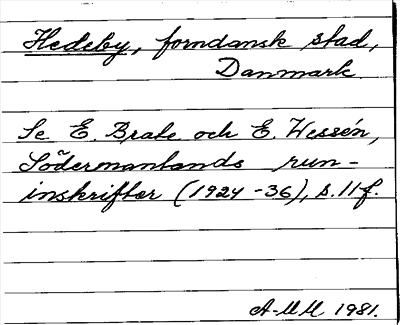 Hedeby, forndansk stad,
Danmark
Se E. Brate och E. Wessén,
Södermanlands run-
inskrifter (1924-36), s. 11 f.
A-MM 1981.